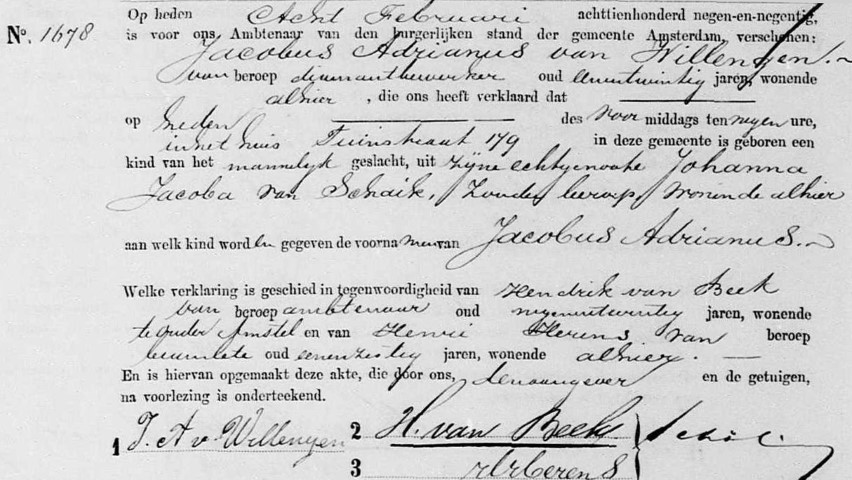 Op heden Acht Februarij achttienhonderd negen-en-negentig,
Nº. 1678 is voor ons, Ambtenaar van den burgerlijken stand der gemeente Amsterdam, verschenen:
Jacobus Adrianus van Willengen.
van beroep diamantbewerker oud eenentwintig jaren, wonende
alhier, die ons heeft verklaard dat
op heden des voor middags ten negen ure,
in het huis Tuinstraat 179 in deze gemeente is geboren een
kind van het mannelijk geslacht, uit zijne echtgenoote Johanna
Jacoba van Schaik, zonder beroep, wonende alhier
aan welk kind worden gegeven de voornamen van Jacobus Adrianus.
Welke verklaring is geschied in tegenwoordigheid van Hendrik van Beek
van beroep ambtenaar oud negenentwintig jaren, wonende
te Ouder Amstel en van Henri van beroep
beambte oud eenenzestig jaren, wonende alhier.
En is hiervan opgemaakt deze akte, die door ons, den aangever en de getuigen,
na voorlezing is onderteekend.
1 J. A v. Willengen 2 H. van Beek
3